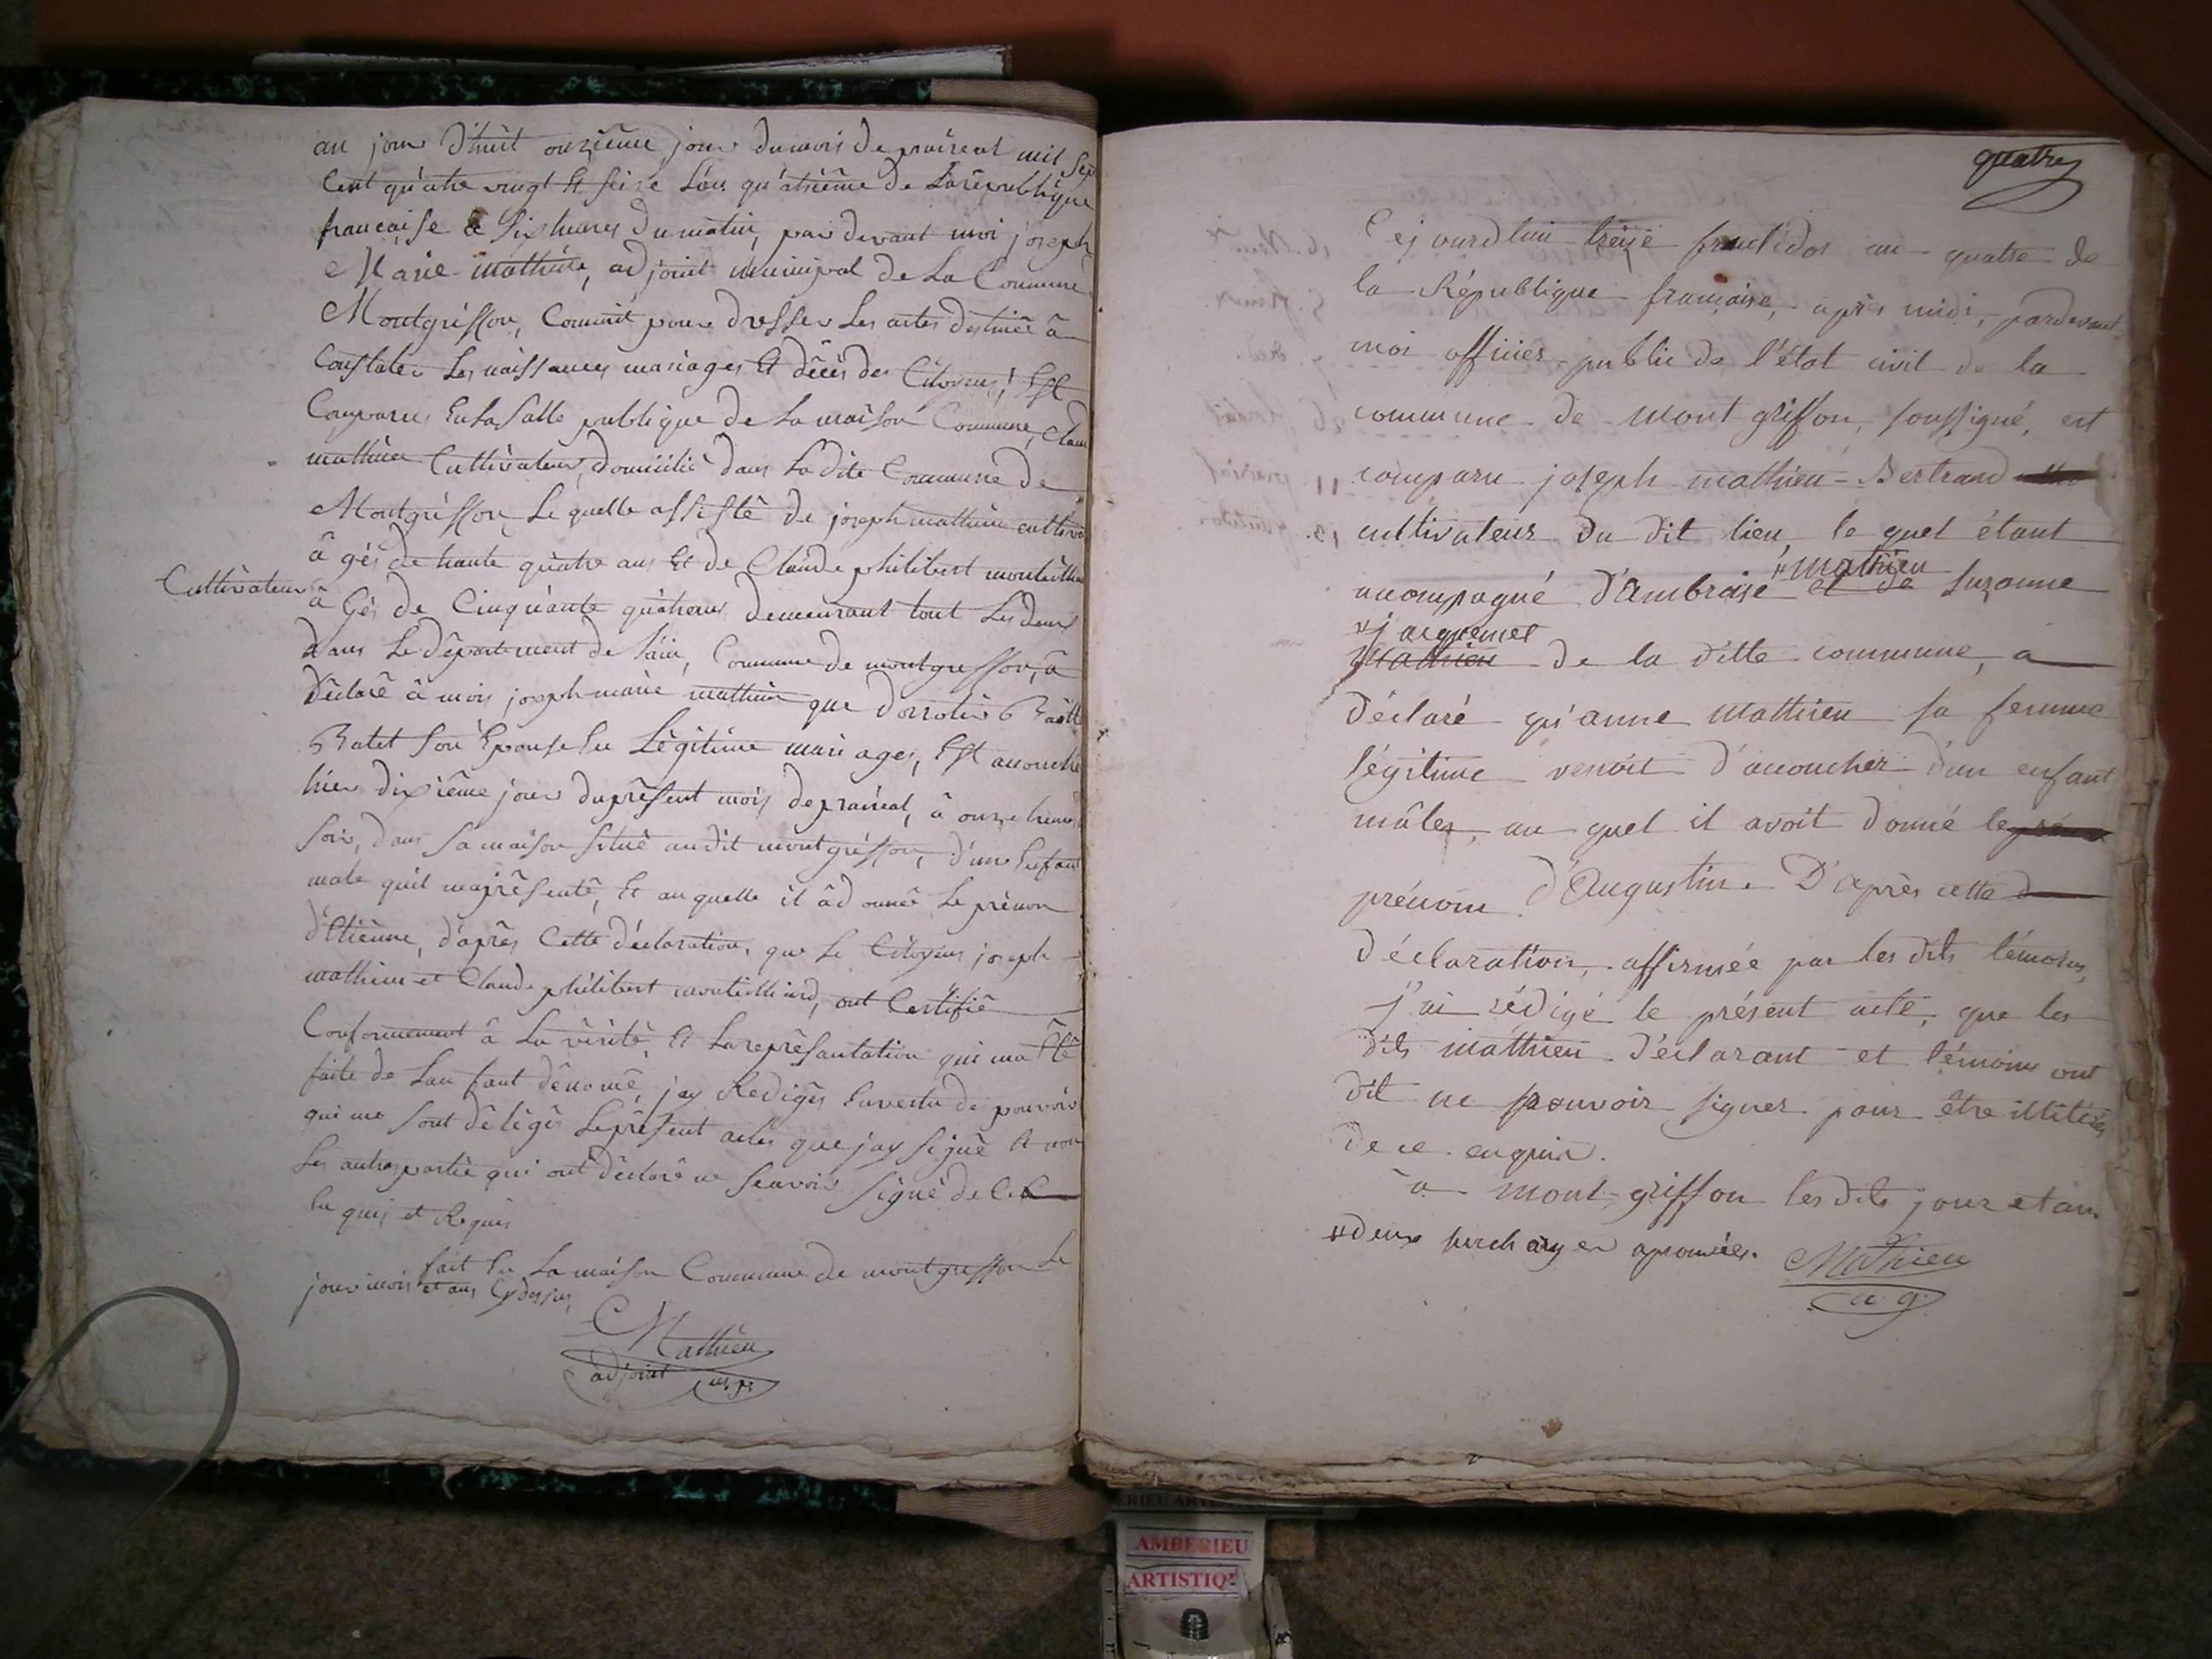 au jour d'huit onzième jour du mois de prairéal mil sep
Cent quâtre vingt Et seise Lan quâtrième de La république
française à Six heures du matin, par devant moi joseph
Marie mathieu, adjoint municipal de La Commune
Montgriffon, Commit pour dresser Les actes destinée à
Constater Les naissances mariages Et décès des Citoyens, Est
Comparu En La Salle publique de La maison Commune, Claud
mathieu Cultivateur, domicilié dans La dite Commune de
Montgriffon, Le quelle assistê de joseph mathieu cultiva
âgés de trante quâtre ans Et de Claude philibert
Cultivateur
â Gés de Cinquante quâtre demeurant tout Les deux
dans Le département de Lain, Commune de montgriffon, â
déclarê â mois joseph marie mathieu que
Ratet Son Epouse En Légitime mariages, Est accouché
hier dixième jour du présent mois de prairéal, â onze heure
Soir, dans Sa maison Situê audit montgriffon, d'un Enfant
male quil maprésentê, Et au quelle il â donnê Le prénon
d'Etiênne, d'après Cette déclaration, que Le Citoyens joseph
mathieu et Claude philibert ont Certifiê
Conformement â La véritê, Et La représantation qui ma Etê
faite de Lanfant dénomê, jay Rediges En vertu des pouvoir
qui me Sont délégês Le présent actes que jay Signê Et non
Les autres partie qui ont déclarê ne Seavoir Signé de Ce
En quis et Requis
fait En La maison Commune de montgriffon Le
jour mois et ans Cydessus
Mathieu
adjoint
quatre
Cejourdhui treize fructidor an quatre de
la République française, après midi, pardevant
moi officier public de l'état civil de la
commune de mont griffon, soussigné, est
comparu joseph mathieu-Bertrand
cultivateur du dit lieu, le quel étant
accompagné d'Ambroise mathieu et de Suzanne
jacquemet
Mathieu de la ditte commune, a
déclaré qu'anne mathieu sa femme
légitime venoit d'accoucher d'un enfant
mâle, au quel il avoit donné le
prénom d'Augustin. D'après cette
déclaration, affirmée par les dits témoins,
j'ai rédigé le présent acte, que les
dits mathieu déclarant et témoins ont
dit ne pouvoir signer pour être illitérés
de ce enquis.
à mont-griffon les dits jour et an.
deux surcharges aprouvées.
Mathieu
a g.
AMBERIEU
ARTISTIQ